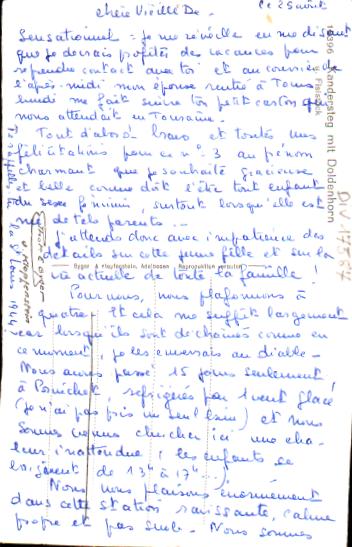 Chère Vieille De -
Ce 25 août
Sensationnel : Je me réveille en me disant
que je devrais profiter des vacances pour
reprendre contact avec toi et au courrier de
l'après-midi mon épouse rentrée à Tours
lundi me fait suivre ton petit carton qui
nous attendait en Touraine.
Tout d'abord bravo et toutes mes
félicitations pour ce n° 3 au prénom
charmant que je souhaite gracieuse
et belle comme doit l'être tout enfant
du sexe féminin surtout lorsqu'elle est
née de tels parents...
J'attends donc avec impatience des
détails sur cette jeune fille et sur la
vie actuelle de toute la famille !
Pour nous, nous plafonnons à
quatre. Et cela me suffit largement
car lorsqu'ils sont déchaînés comme en
ce moment, je les enverrais au diable -
Nous avons passé 15 jours seulement
à Pornichet, réfrigérés par 1 vent glacé
(je n'ai pas pris un seul bain) et nous
sommes venus chercher ici une cha-
leur inattendue : les enfants se
baignent de 13h à 17h...
Nous nous plaisons énormément
dans cette station ravissante, calme
propre et pas snob. Nous sommes
10396 Kandersteg mit Doldenhorn
u. Fisistock
Gyger & Klopfenstein, Adelboden
Reproduktion verboten
Te rappelles-tu le 25 août 1944